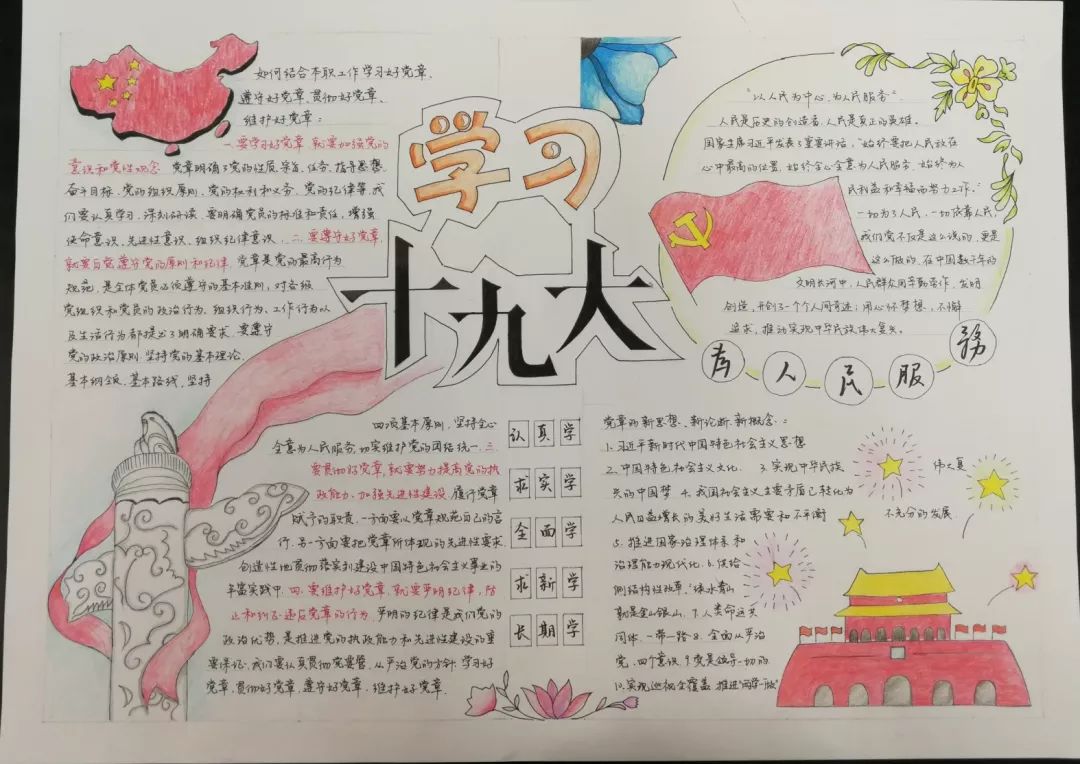 学习
十九大
如何结合本职工作学习好党章、
遵守好党章、贯彻好党章、
维护好党章：
一.要学习好党章,就要加强党的
意识和党性观念.党章明确了党的性质、宗旨、任务、指导思想、
奋斗目标、党的组织原则、党的权利和义务、党的纪律等,我
们要认真学习,深刻研读,要明确党员的标准和责任,增强
使命意识、先进性意识、组织纪律意识.二.要遵守好党章,
就要自觉遵守党的原则和纪律.党章是党的最高行为
规范,是全体党员必须遵守的基本准则,对各级
党组织和党员的政治行为、组织行为、工作行为以
及生活行为都提出了明确要求.要遵守
党的政治原则.坚持党的基本理论、
基本纲领、基本路线,坚持
四项基本原则,坚持全心
全意为人民服务,切实维护党的团结统一.三.
要贯彻好党章,就要努力提高党的执
政能力、加强先进性建设.履行党章
赋予的职责,一方面要以党章规范自己的言
行,另一方面要把党章所体现的先进性要求,
创造性地贯彻落实到建设中国特色社会主义事业的
丰富实践中.四.要维护好党章,就要严明纪律,防
止和纠正违反党章的行为.严明的纪律是我们党的
政治优势,是推进党的执政能力和先进性建设的重
要保证.我们要认真贯彻党要管、从严治党的方针.学习好
党章,贯彻好党章,遵守好党章,维护好党章.
认真学
求实学
全面学
求新学
长期学
"以人民为中心,为人民服务".
人民是历史的创造者,人民是真正的英雄.
国家主席习近平发表了重要讲话,"始终要把人民放在
心中最高的位置,始终全心全意为人民服务,始终为人
民利益和幸福而努力工作."
一切为了人民,一切依靠人民,
我们党不仅是这么说的,更是
这么做的.在中国数千年的
文明长河中,人民群众用辛勤劳作,发明
创造,开创了一个个人间奇迹,用心怀梦想,不懈
追求,推动实现中华民族伟大复兴.
为人民服務
党章的新思想、新论断、新概念.：
1.习近平新时代中国特色社会主义思想
2.中国特色社会主义文化. 3.实现中华民族 伟大复
兴的中国梦 4.我国社会主义主要矛盾已转化为
人民日益增长的美好生活需要和不平衡 不充分的发展.
5.推进国家治理体系和
治理能力现代化.6.供给
侧结构性改革,"绿水青山
就是金山银山.7.人类命运共
同体,一带一路.8.全面从严治
党,四个意识.9.党是领导一切的
10.实现巡视全覆盖,推进"两学一做"